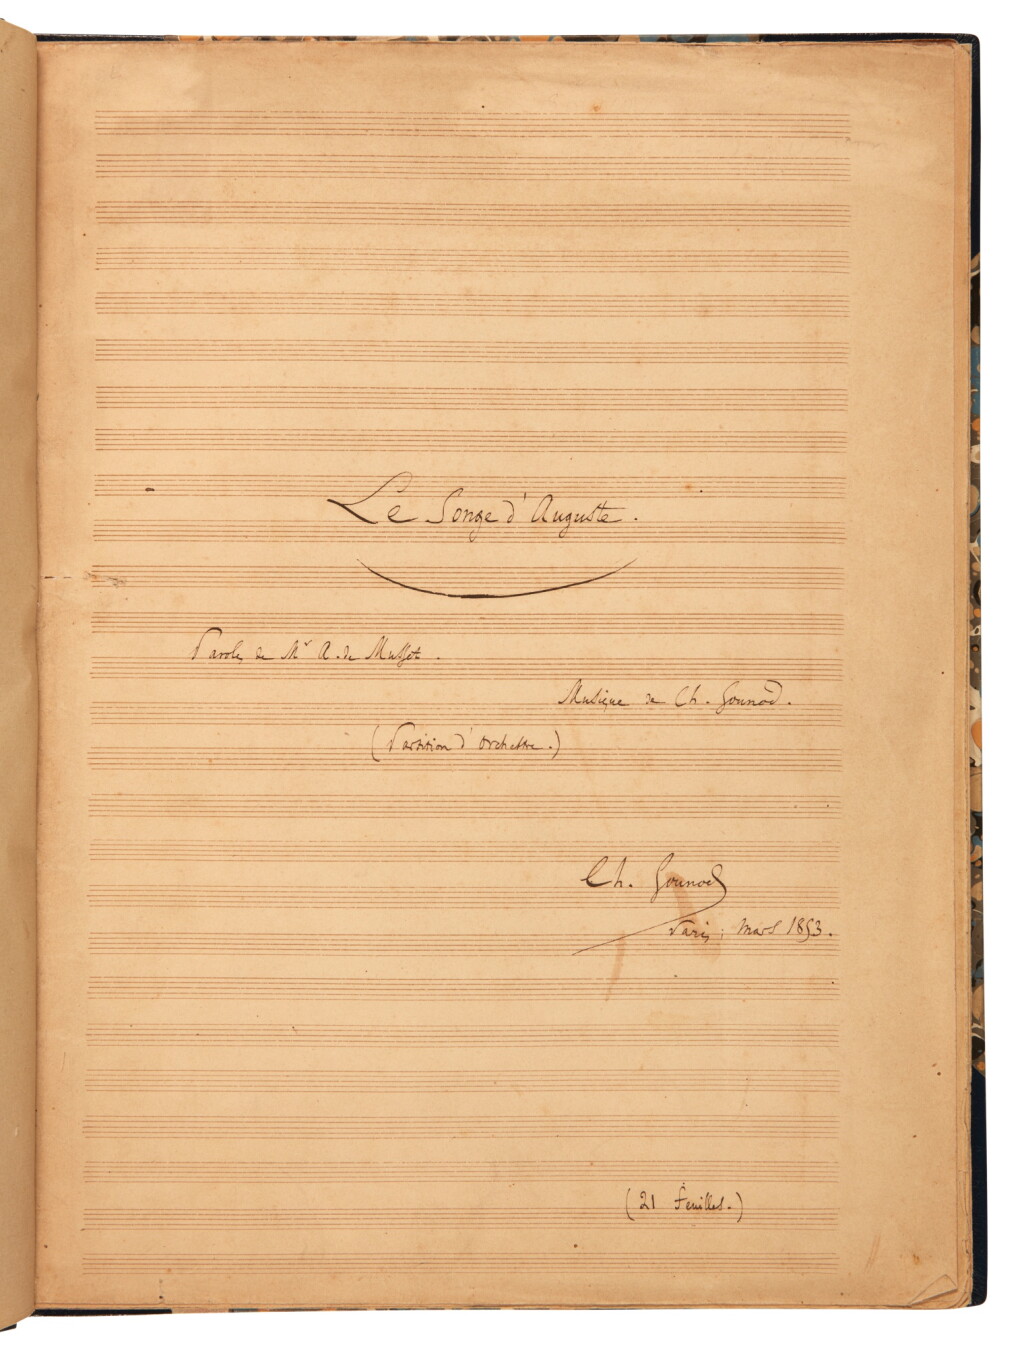 Le Songe d'Auguste.
Paroles de Mr A. de Musset.
Musique de Ch. Gounod.
(Partition d'Orchestre.)
Ch. Gounod
Paris; Mars 1853.
(21 Feuilles.)